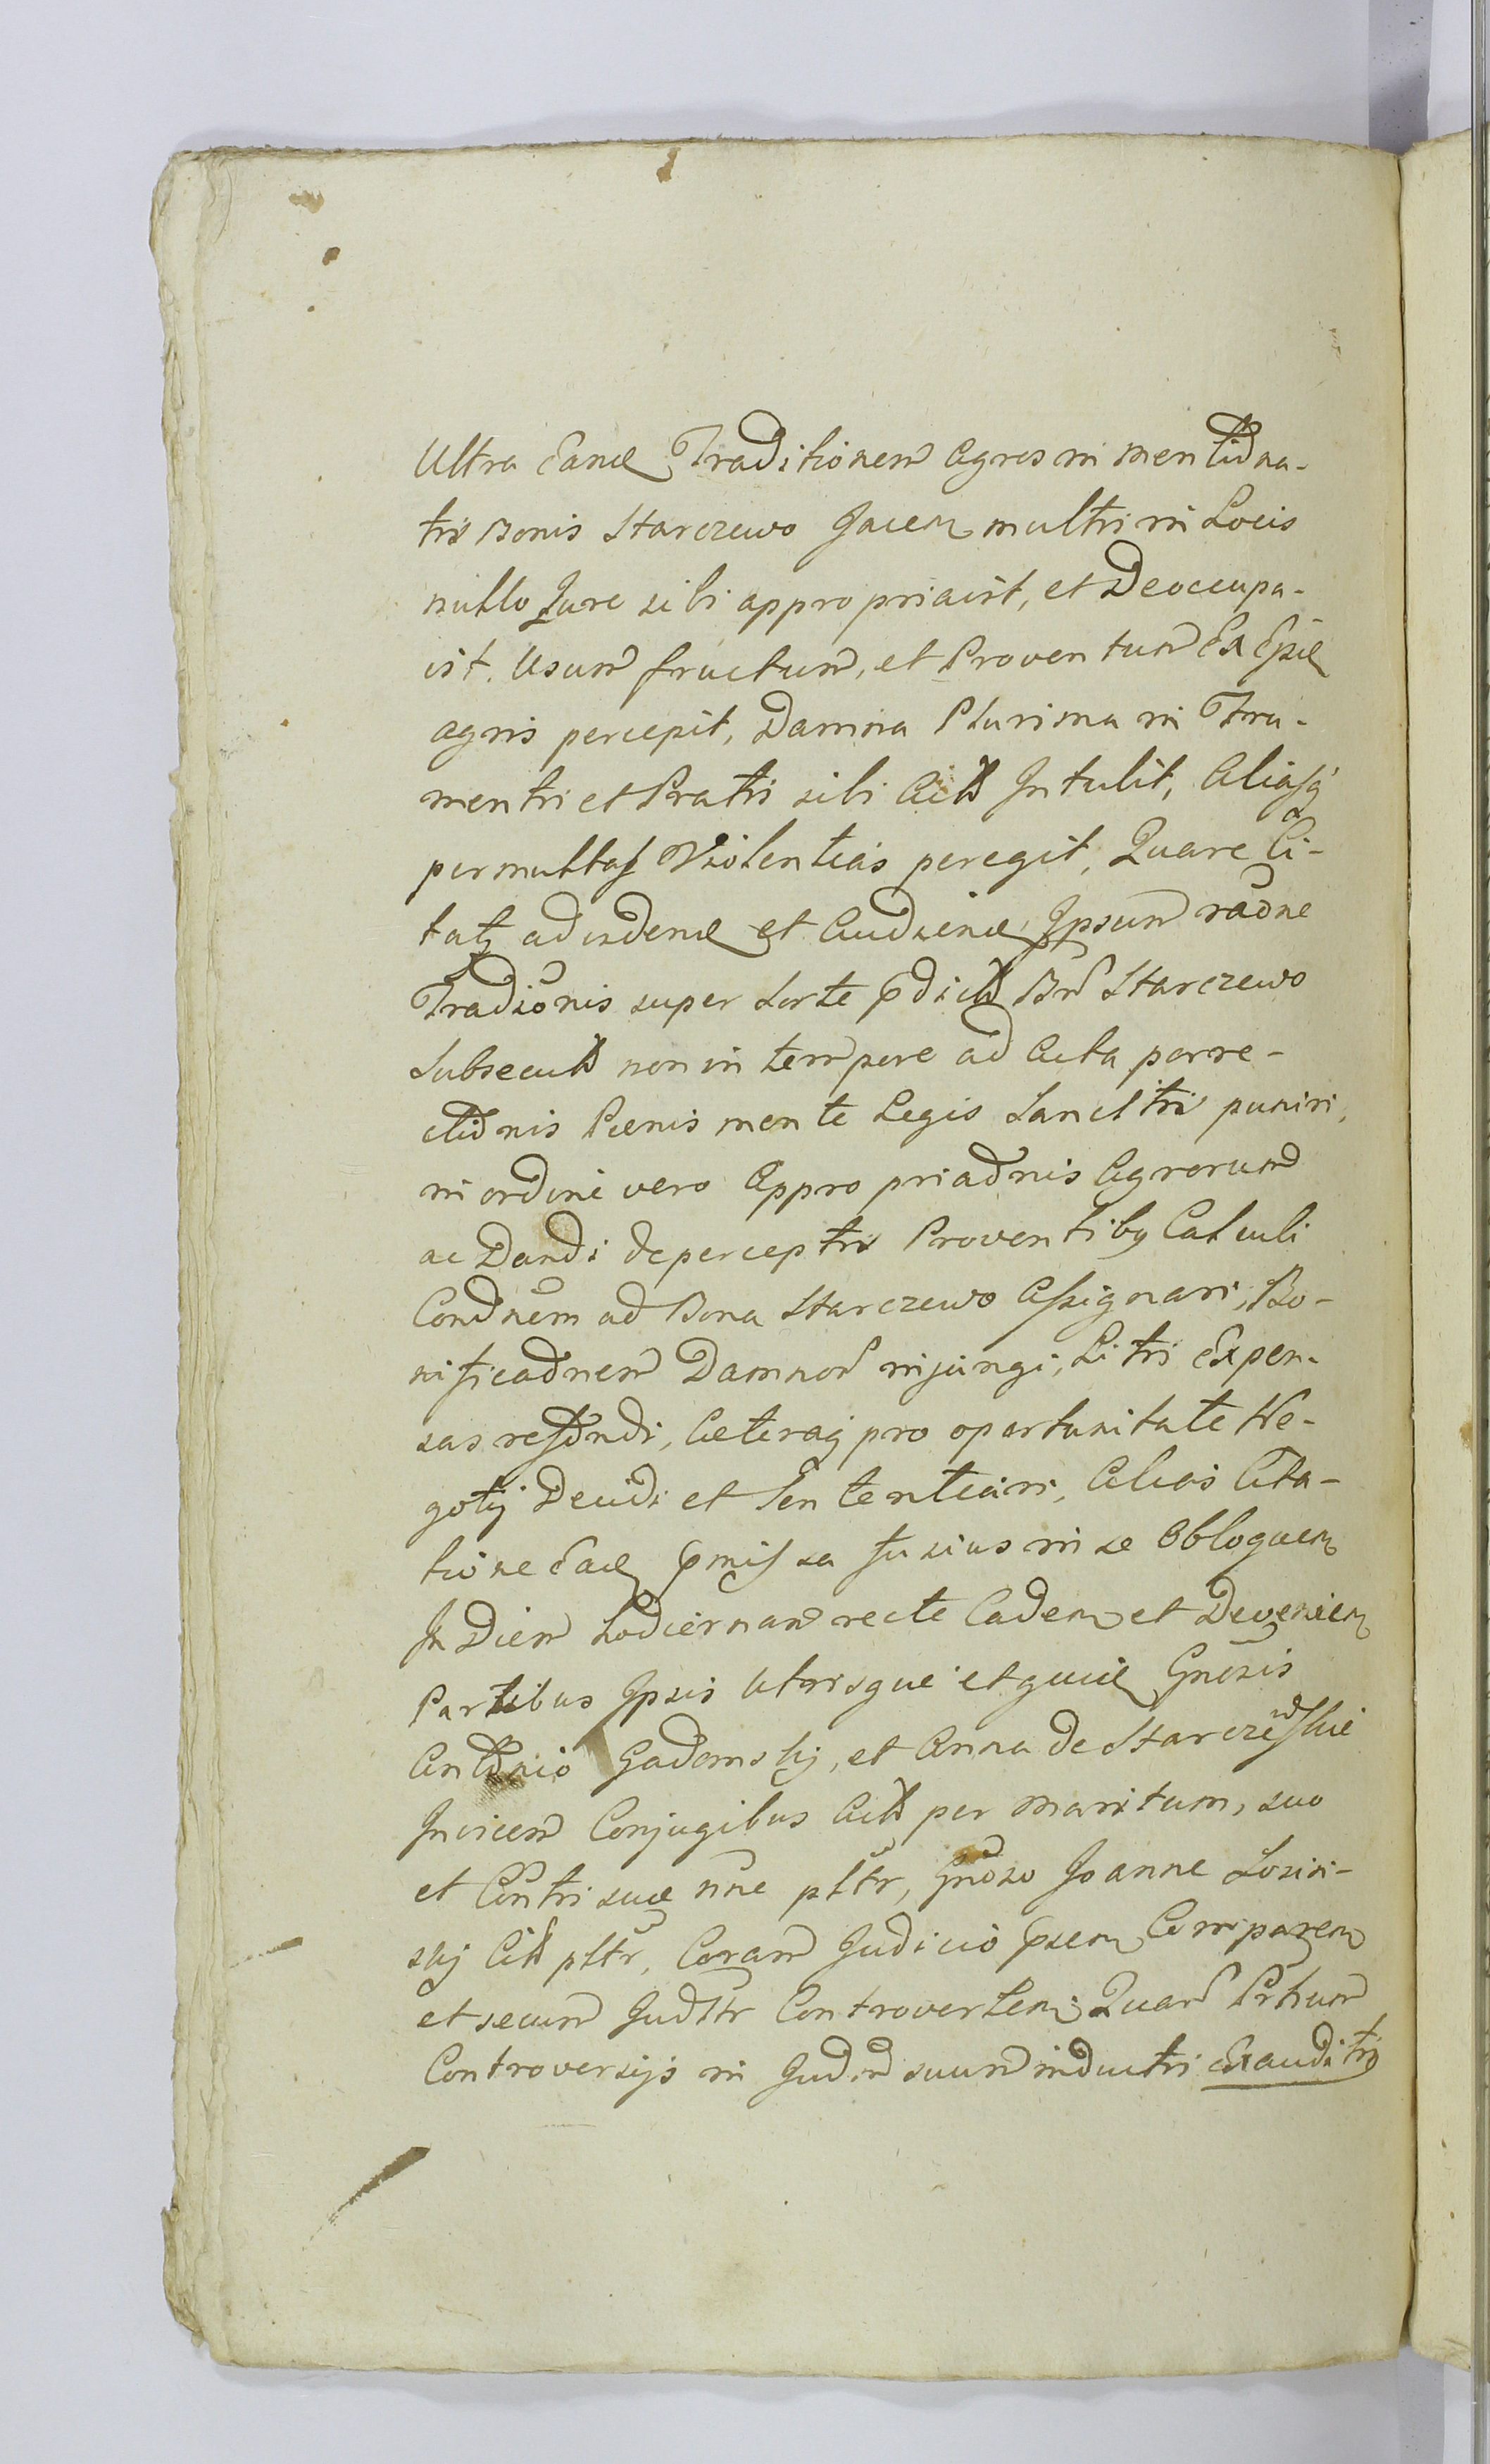 Ultra Eand Traditionem Agros in mentiõna-
tis Bonis Starczewo Jacen multis in Locis
nullo Jure sibi appropriavit, et Deoccupa-
vit. Usum fructum, et Proventum Ex
agris percepit, Damna Plurima in Fru-
mentis et Pratis sibi Intulit, Aliasq
permultas Violentias peregit, Quare Ci-
tatg ad et Ipsum rãone
Tradiõnis super Sorte Starczewo
non in tempore ad Acta porre-
ctiõnis Pœnis mente Legis Sancitis puniri,
in ordine vero Appropriaõnis Agrorum
ac Dandi de perceptis Proventibg Calculi
Condnẽm ad Bona Starczewo Assignari, Bo-
nificaõnem Damnor injungi, Litis Expen-
sas refundi, Cæteraq pro oportunitate Ne-
gotij Decidi et Sententiari, Alias Cita-
tione fusius in se Obloquen
In Diem hodiernam recte Caden et Devenien
Partibus Ipsis Utrisque Gnõsis
Antonio Gadomskj, et Anna de Starczewskie
Invicem Conjugibus per Maritum, suo
et Cõntis suæ nne plltr, Gnõso Joanne Losin-
skj plltr, Coram Judicio Comparen
et secum Controverten Quar Prtium
Controversijs in suum inductis Exauditis